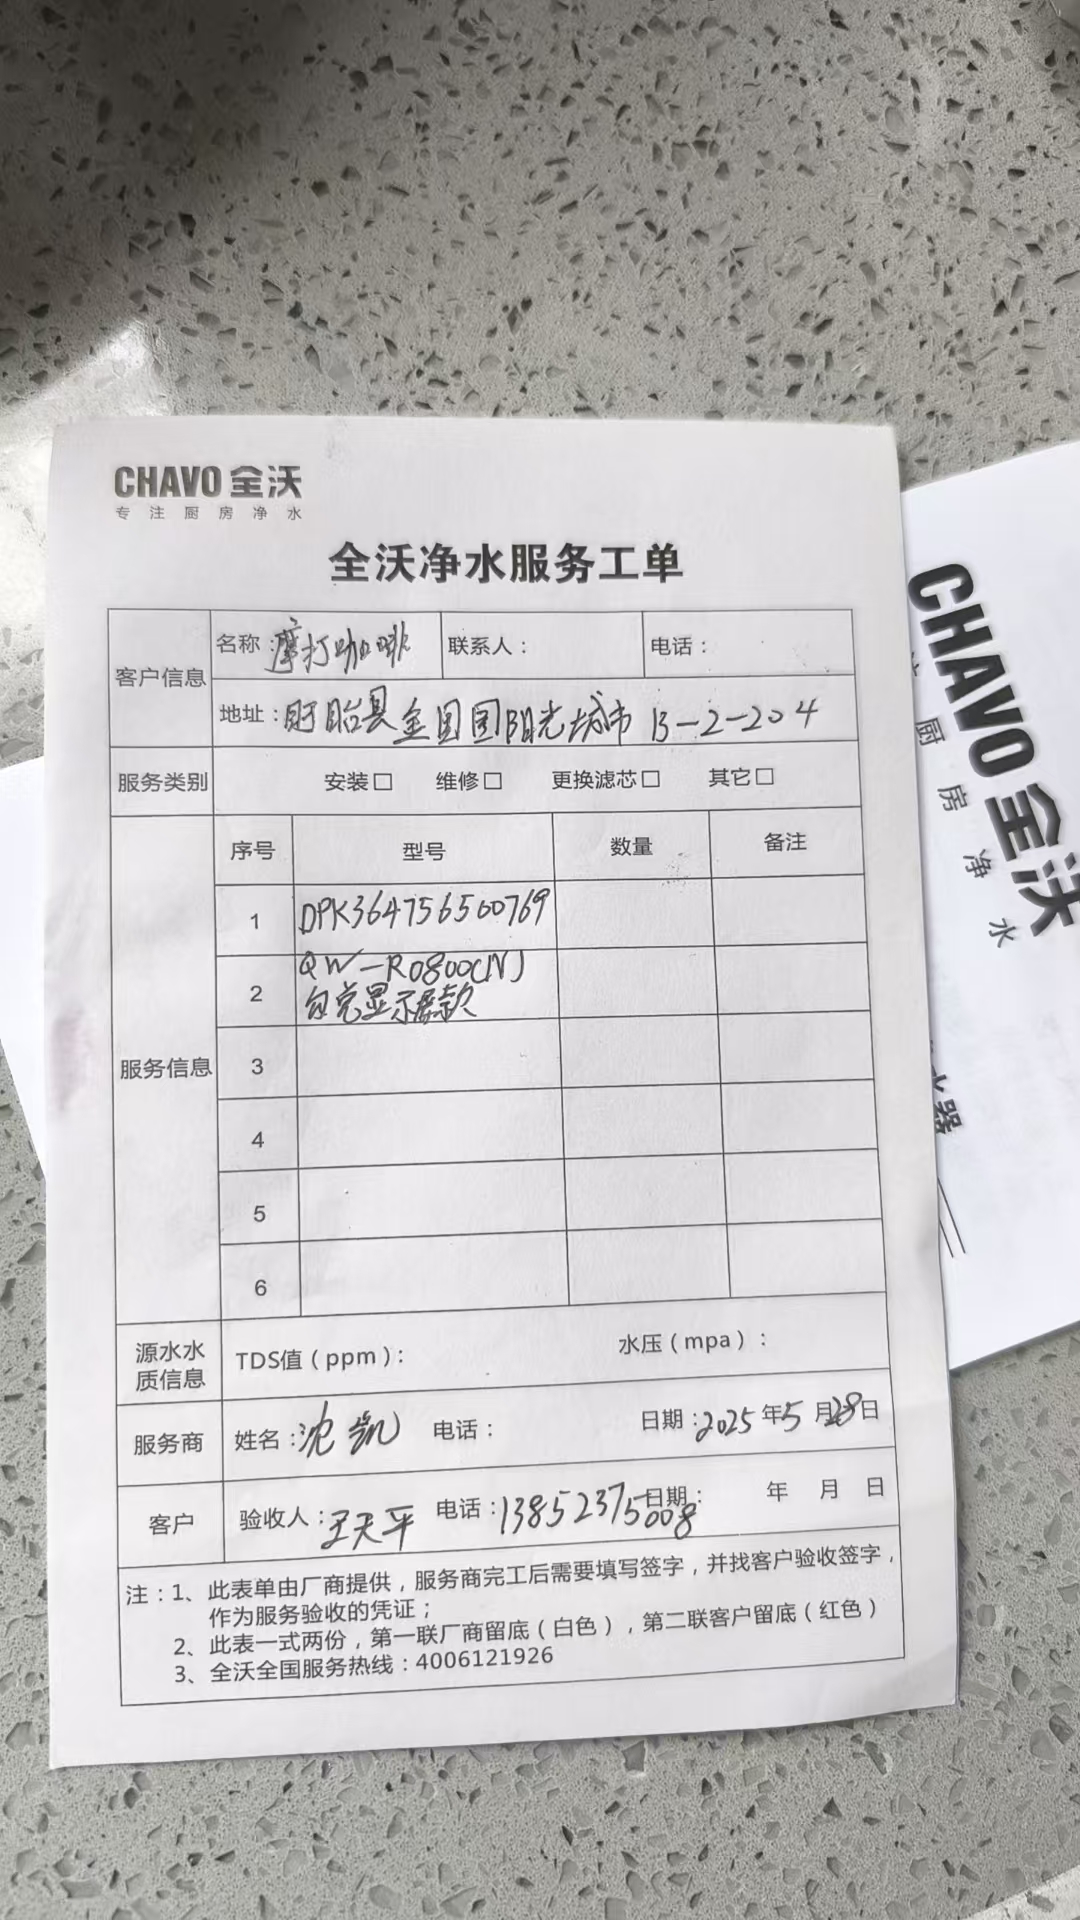 CHAVO 全沃
专注厨房净水
全沃净水服务工单
客户信息
名称：摩打咖啡 联系人： 电话：
地址：盱眙县金园国阳光城市 13-2-204
服务类别 安装□ 维修□ 更换滤芯□ 其它□
服务信息
序号 型号 数量 备注
1 DPK364756500769
2 QW-RO800C(N)
显示屏款
3
4
5
6
源水水质信息 TDS值（ppm）： 水压（mpa）：
服务商 姓名：沈凯 电话： 日期：2025年5月28日
客户 验收人：王天平 电话：13852375008 日期： 年 月 日
注：1、此表单由厂商提供，服务商完工后需要填写签字，并找客户验收签字，
作为服务验收的凭证；
2、此表一式两份，第一联厂商留底（白色），第二联客户留底（红色）
3、全沃全国服务热线：4006121926
CHAVO 全沃
厨房净水
水器